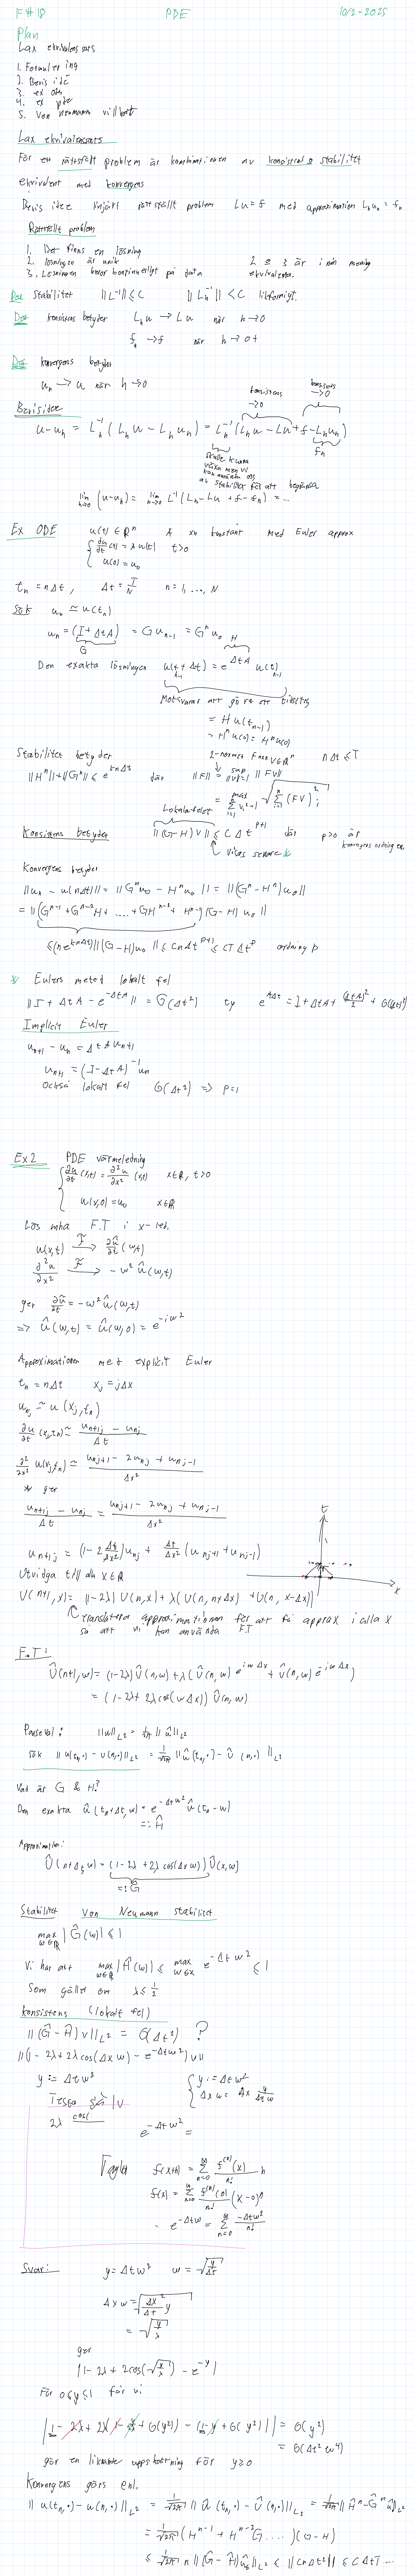 F#18 PDE 10/2-2025
Plan
Lax ekvivalenssats
1. Formulering
2. Bevis idé
3. ex ode
4. ex pde
5. Von Neumann villkort
Lax ekvivalenssats
För ett rättställt problem är kombinationen av konsistens & stabilitet
ekvivalent med konvergens
Bevis idee linjärt rättställt problem Lu=f med approximation L_h u_h = f_h
Rättställt problem
1. Det finns en lösning
2. lösningen är unik
3. Lösningen beror kontinuerligt på data
2 & 3 är i min mening ekvivalenta.
Def Stabilitet ||L^-1|| ≤ C ||L_h^-1|| < C likformigt.
Def konsistens betyder L_h u → Lu när h→0
f_h → f när h→0+
Def konvergens betyder
u_h → u när h→0
Bevisidee
konsistens →0 konsistens →0
u-u_h = L_h^-1 (L_h u - L_h u_h) = L_h^-1 (L_h u - Lu + f - L_h u_h)
f_h
skulle kunna
växa men vi
kan använda oss
av stabilitet för att begränsa
lim h→0 (u-u_h) = lim h→0 L^-1 (L_h - Lu + f - f_h) = ...
Ex ODE u(t) ∈ R^n A nxn konstant med Euler approx
{ du/dt (t) = A u(t) t>0
u(0) = u_0
t_n = nΔt, Δt = T/N n=1, ..., N
Sök u_n ≃ u(t_n)
u_n = (I+ΔtA) = G u_n-1 = G^n u_0
G
Den exakta lösningen u(t+Δt) = e^ΔtA u(t)
H
Motsvarar att göra ett tidssteg
= H u(t_n-1)
= H^n u(0) = H^n u(0)
Stabilitet betyder 2-normen F nxn v∈R^n nΔt ≤ T
||H^n|| + ||G^n|| ≤ e^knΔt där ||F|| = sup ||v||=1 ||Fv||
Lokala felet
Konsistens betyder ||(G-H)v|| ≤ C Δt^p+1 där p>0 är
konvergens ordningen.
visas senare
Konvergens betyder
||u_n - u(nΔt)|| = ||G^n u_0 - H^n u_0|| = ||(G^n - H^n) u_0||
= ||(G^n-1 + G^n-2 H + .... + G H^n-2 + H^n-1)(G-H) u_0||
≤ (n e^knΔt) ||(G-H)u_0|| ≤ C n Δt^p+1 ≤ CT Δt^p ordning p
* Eulers metod lokalt fel
||I + ΔtA - e^-ΔtA|| = O(Δt²) ty e^AΔt = I + ΔtA + (ΔtA)²/2 + O(Δt³)
Implicit Euler
u_n+1 - u_n = Δt A u_n+1
u_n+1 = (I-ΔtA)^-1 u_n
också lokalt fel O(Δt²) => p=1
Ex 2 PDE värmeledning
{ ∂u/∂t (x,t) = ∂²u/∂x² (x,t) x∈R, t>0
u(x,0) = u_0 x∈R
Lös mha F.T i x-led.
u(x,t) →F ∂û/∂t (w,t)
∂²u/∂x² →F -w² û(w,t)
ger ∂û/∂t = -w² û(w,t)
=> û(w,t) = û(w,0) = e^-iw²
Approximation med explicit Euler
t_n = nΔt x_j = jΔx
u_nj ≃ u(x_j, t_n)
∂u/∂t (x_j,t_n) ≃ (u_n+1j - u_nj)/Δt
∂²/∂x² u(x_j,t_n) ≃ (u_nj+1 - 2u_nj + u_nj-1)/Δx²
* ger
(u_n+1j - u_nj)/Δt = (u_nj+1 - 2u_nj + u_nj-1)/Δx²
u_n+1j = (1-2 Δt/Δx²) u_nj + Δt/Δx² (u_nj+1 + u_nj-1)
t
x
Utvidga till alla x∈R
U(n+1,x) = (1-2λ) U(n,x) + λ(U(n, x+Δx) + U(n, x-Δx))
translatera approximationen för att få approx i alla x
så att vi kan använda F.T
F.T:
Û(n+1,w) = (1-2λ) Û(n,w) + λ(Û(n,w) e^iwΔx + Û(n,w) e^-iwΔx)
= (1-2λ + 2λ cos(wΔx)) Û(n,w)
Parseval: ||u||_L² = 1/√2π ||û||_L²
sök ||u(t_n,·) - U(n,·)||_L² = 1/√2π ||û(t_n,·) - Û(n,·)||_L²
Vad är G & H?
Den exakta û(t_n+Δt, w) = e^-Δtw² û(t_n-w)
=: Ĥ
Approximation:
Û(n+Δt,w) = (1-2λ+2λ cos(Δxw)) Û(x,w)
=: Ĝ
Stabilitet Von Neumann stabilitet
max w∈R |Ĝ(w)| ≤ 1
Vi har att max w∈R |Ĥ(w)| ≤ max w∈R e^-Δtw² ≤ 1
Som gäller om λ ≤ 1/2
konsistens (lokalt fel)
||(Ĝ-Ĥ)v||_L² = O(Δt²) ?
||(1-2λ+2λcos(Δxw) - e^-Δtw²) v||
y := Δtw²
{ y := Δtw²
Δxw = Δx √y/Δtw
Testa själv
2λ cos(
e^-Δtw² =
Taylor f(x+h) = Σ n=0 ∞ f^(n)(x)/n! h
f(x) = Σ n=0 ∞ f^(n)(0)/n! (x-0)^n
e^-Δtw = Σ n=0 ∞ -Δtw²/n!
Svar: y = Δtw² w = √(y/Δt)
Δxw = √(Δx²/Δt y)
= √(y/λ)
ger
|1-2λ + 2cos(√(y/λ)) - e^-y|
För 0≤y≤1 får vi
|1 - 2λ + 2λ(1 - y/2λ + O(y²)) - (1-y + O(y²))| = O(y²)
= O(Δt²w⁴)
gör en liknande uppskattning för y≥0
Konvergens görs enl.
||u(t_n,·) - u(n,·)||_L² = 1/√2π ||û(t_n,·) - Û(n,·)||_L² = 1/√2π ||Ĥ^n - Ĝ^n û||_L²
= 1/√2π (H^n-1 + H^n-2 G ....)(G-H)
≤ 1/√2π n ||(Ĝ-Ĥ)û_0||_L² ≤ ||CnΔt²|| ≤ CΔtT ...